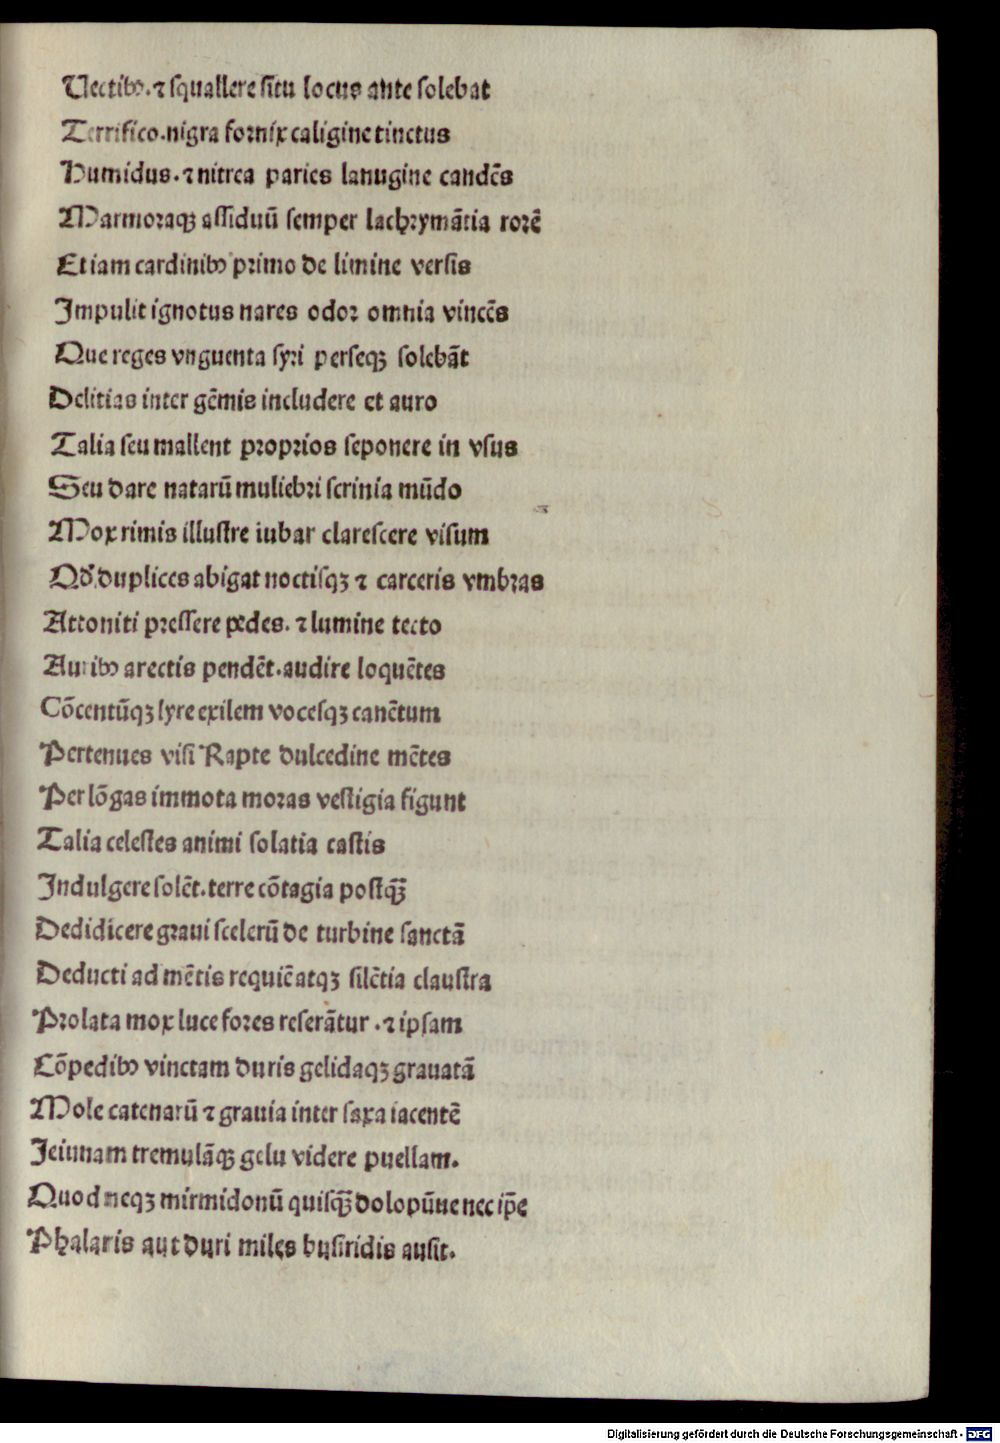 Uectibꝰ.⁊ squallere situ locus ante solebat
Terrifico.nigra fornix caligine tinctus
Humidus.⁊ nitrea paries lanugine candẽs
Marmoraqꝫ assiduũ semper lachrymãtia rorẽ
Etiam cardinibꝰ primo de limine versis
Impulit ignotus nares odor omnia vincẽs
Que reges vnguenta syri perseqꝫ solebãt
Delitias inter gẽmis includere et auro
Talia seu mallent proprios seponere in vsus
Seu dare natarũ muliebri scrinia mũdo
Mox rimis illustre iubar clarescere visum
Qď duplices abigat noctisqꝫ ⁊ carceris vmbras
Attoniti pressere pedes.⁊ lumine tecto
Auribꝰ arectis pendẽt.audire loquẽtes
Cõcentũqꝫ lyre exilem vocesqꝫ canẽtum
Pertenues visi Rapte dulcedine mẽtes
Per lõgas immota moras vestigia figunt
Talia celestes animi solatia castis
Indulgere solẽt.terre cõtagia postqꝫ̃
Dedidicere graui scelerũ de turbine sanctã
Deducti ad mẽtis requiẽ atqꝫ silẽtia claustra
Prolata mox luce fores reserãtur .⁊ ipsam
Cõpedibꝰ vinctam duris gelidaqꝫ grauatã
Mole catenarũ ⁊ grauia inter saxa iacentẽ
Ieiunam tremulãqꝫ gelu videre puellam.
Quod neqꝫ mirmidonũ quisqꝫ̃ dolopũue nec ip̃e
Phalaris aut duri miles busiridis ausit.
Digitalisierung gefördert durch die Deutsche Forschungsgemeinschaft - DFG